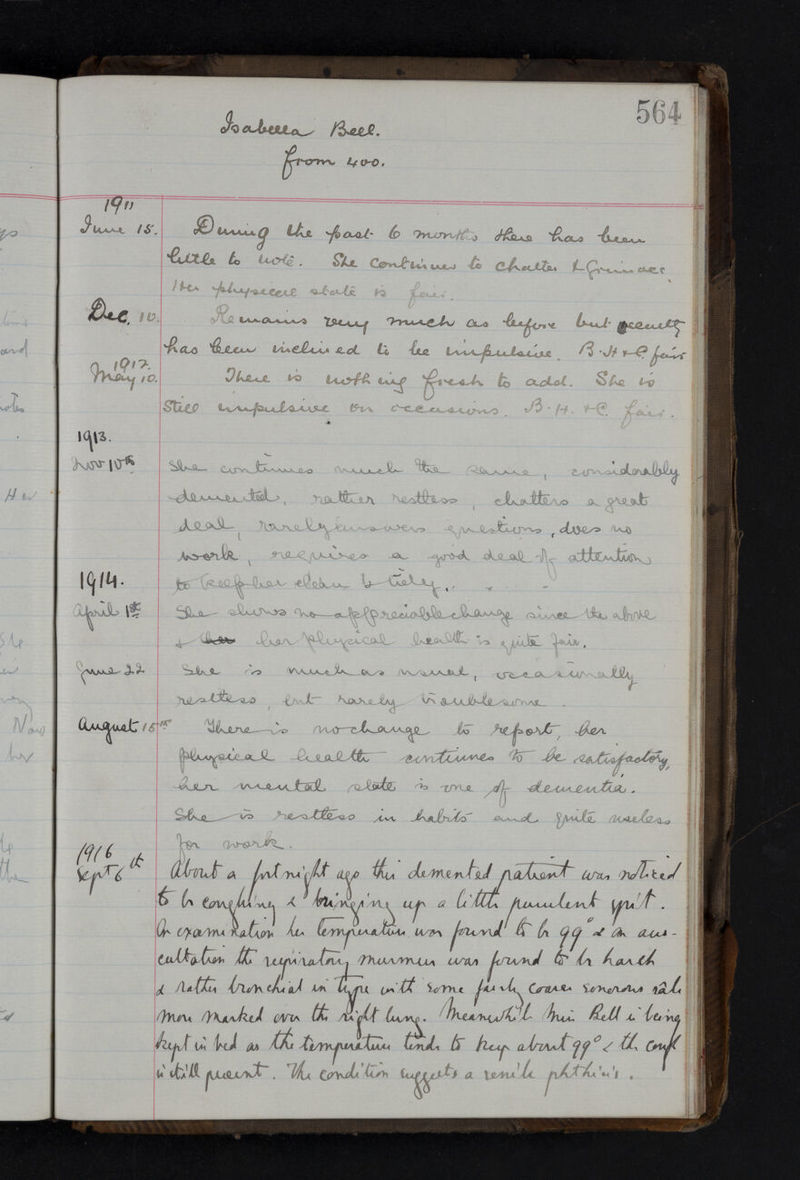 564
Isabella Bell.
from 400.
1911
June 15. During the past 6 months there has been
little to note. She continues to chatter & grimace.
Her physical state is fair.
Dec. 10. Remains very much as before but recently
has been inclined to be impulsive. B.H. & C. fair
1912.
May 10. There is nothing fresh to add. She is
still impulsive on occasions. B.H. & C. fair.
1913.
Nov 10th She continues much the same, considerably
demented, rather restless, chatters a great
deal, rarely answers questions, does no
work, requires a good deal of attention
1914. to keep her clean & tidy.
April 1st She shows no appreciable change since the above
& her her physical health is quite fair.
June 22 She is much as usual, occasionally
restless, but rarely troublesome.
August 15th There is no change to report, her
physical health continues to be satisfactory,
her mental state is one of dementia.
She is restless in habits and quite useless
for work.
1916
Sept 6th About a fortnight ago this demented patient was noticed
to be coughing & bringing up a little purulent spit.
On examination her temperature was found to be 99° & on aus-
cultation the respiratory murmur was found to be harsh
& rather bronchial in type with some fairly coarse sonorous râle
more marked over the right lung. Meanwhile Miss Bell is being
kept in bed as the temperature tends to keep about 99° & the cough
is still present. The condition suggests a senile phthisis.